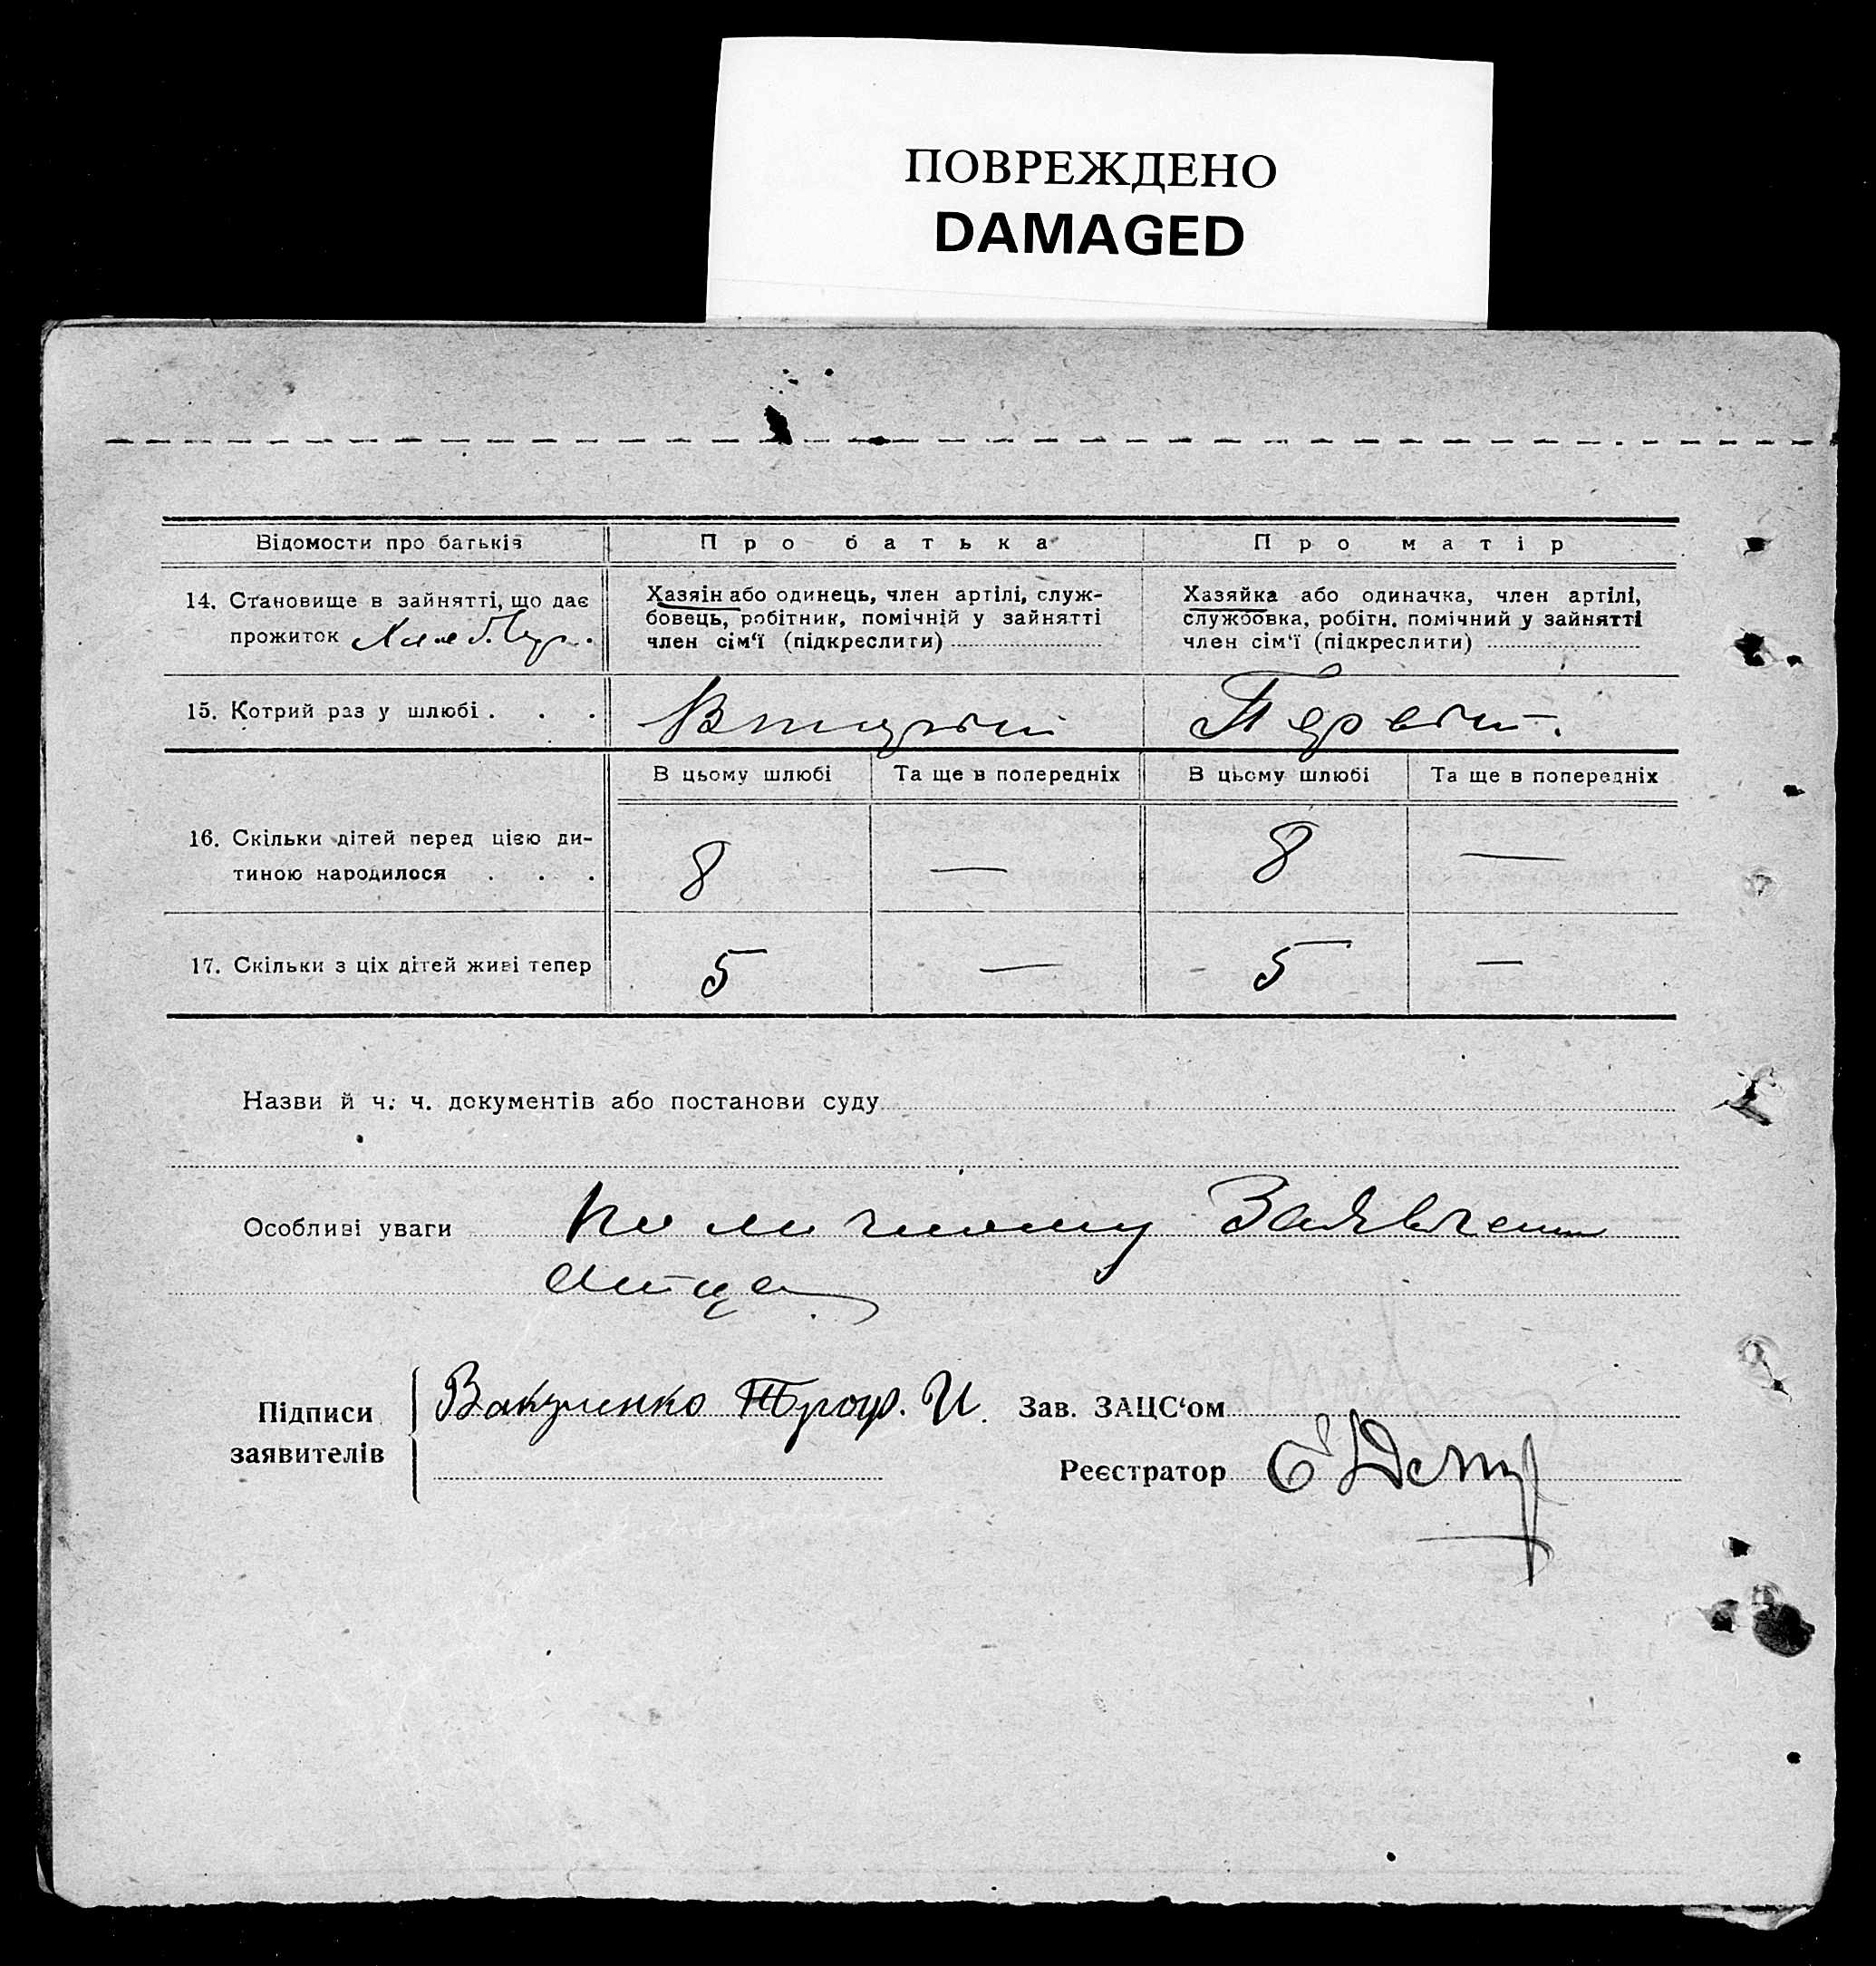 ПОВРЕЖДЕНО
DAMAGED
Відомости про батьків
Про батька
Про матір
14. Становище в зайнятті, що дає
прожиток
Хазяін або одинець, член артілі, служ-
бовець, робітник, помічній у зайнятті
член сім‘ї (підкреслити)
Хазяйка або одиначка, член артілі,
службовка, робітн. помічний у зайнятті
член сім‘ї (підкреслити)
15. Котрий раз у шлюбі . . .
Вторий
Первий.
В цьому шлюбі
Та ще в попередніх
В цьому шлюбі
Та ще в попередніх
16. Скільки дітей перед цією ди-
тиною народилося . . .
8
—
8
—
17. Скільки з ціх дітей живі тепер
5
—
5
—
Назви й ч. ч. документів або постанови суду
Особливі уваги
По личному Заявлению
Отца
Підписи
заявителів
Вакуленко Троф. И.
Зав. ЗАЦС‘ом
Реєстратор